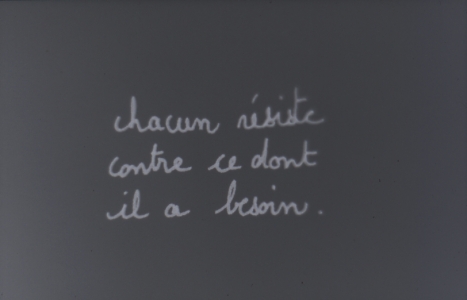 chacun résiste
contre ce dont
il a besoin.